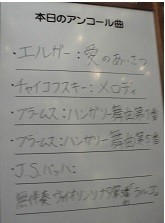 本日のアンコール曲
・エルガー：愛のあいさつ
・チャイコフスキー：メロディ
・ブラームス：ハンガリー舞曲第1番
・ブラームス：ハンガリー舞曲第5番
・J.S.バッハ：
無伴奏ヴァイオリンソナタ第